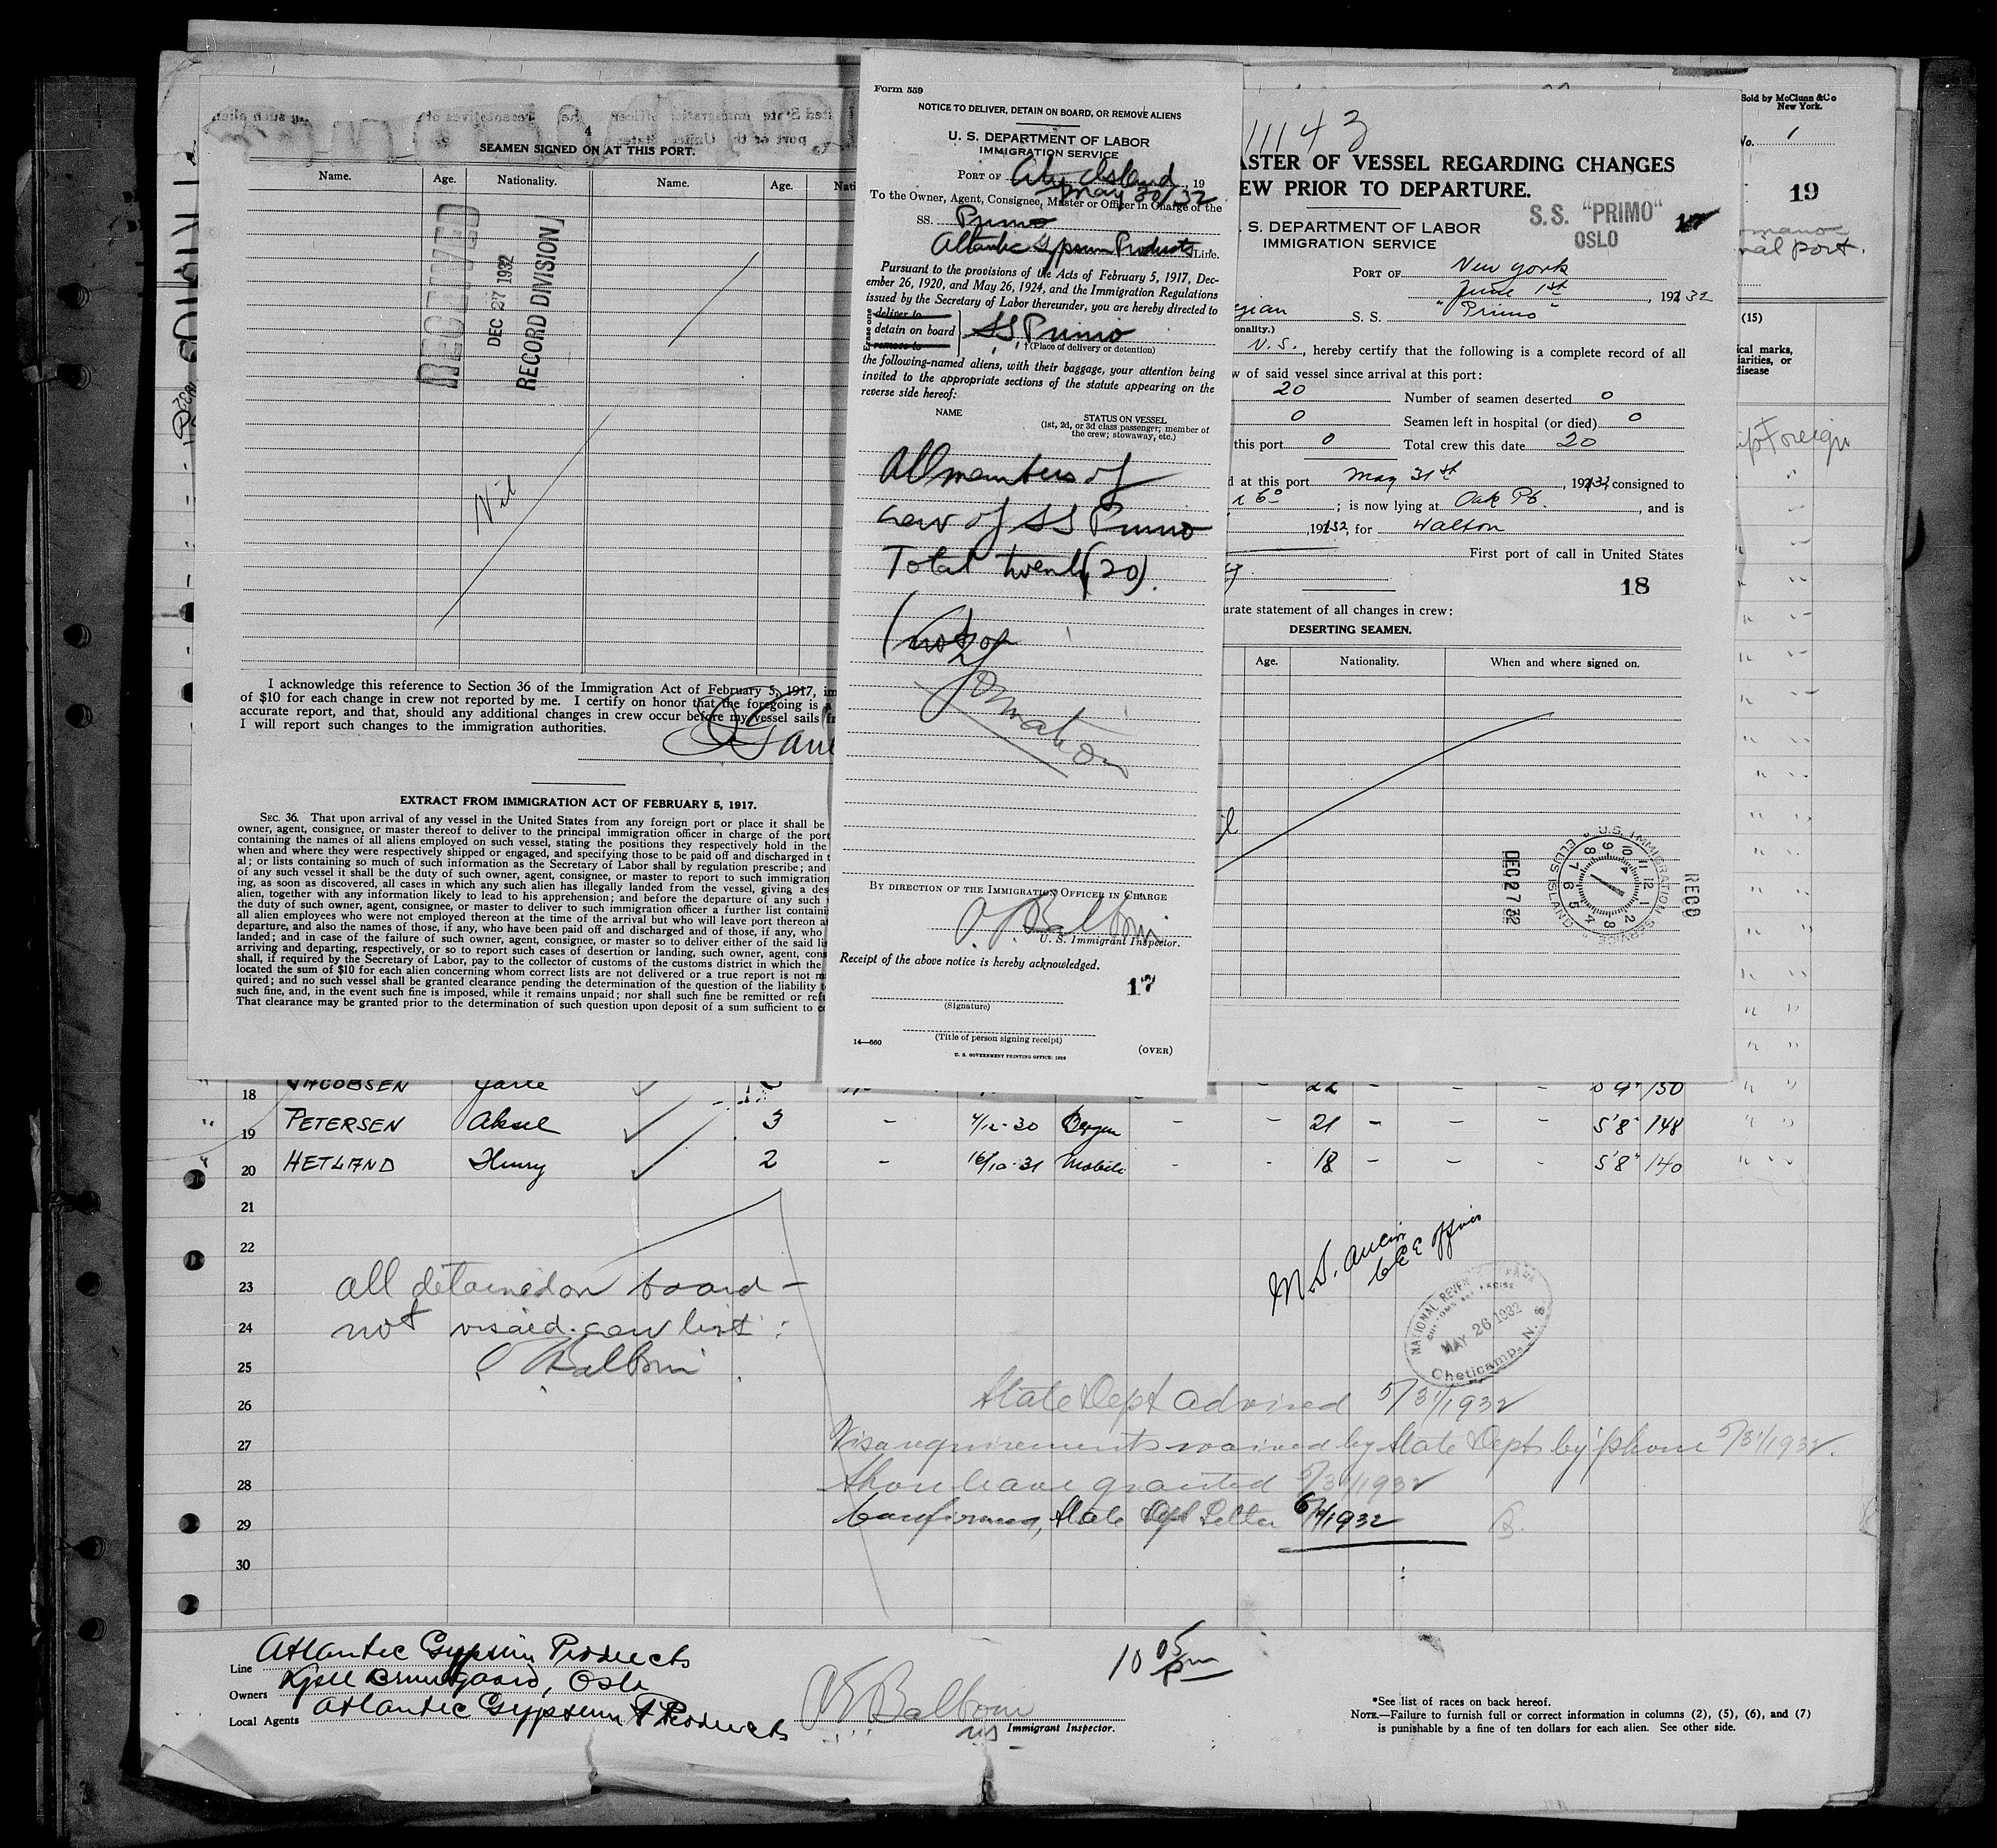 SEAMEN SIGNED ON AT THIS PORT.
4
Name. Age. Nationality. Name. Age. Nati
RECEIVED
DEC 27 1932
RECORD DIVISION
Nil
I acknowledge this reference to Section 36 of the Immigration Act of February 5, 1917, im
of $10 for each change in crew not reported by me. I certify on honor that the foregoing is a
accurate report, and that, should any additional changes in crew occur before my vessel sails fr
I will report such changes to the immigration authorities.
EXTRACT FROM IMMIGRATION ACT OF FEBRUARY 5, 1917.
SEC. 36. That upon arrival of any vessel in the United States from any foreign port or place it shall be
owner, agent, consignee, or master thereof to deliver to the principal immigration officer in charge of the port
containing the names of all aliens employed on such vessel, stating the positions they respectively hold in the
when and where they were respectively shipped or engaged, and specifying those to be paid off and discharged in t
al; or lists containing so much of such information as the Secretary of Labor shall by regulation prescribe; and
of any such vessel it shall be the duty of such owner, agent, consignee, or master to report to such immigration
ing, as soon as discovered, all cases in which any such alien has illegally landed from the vessel, giving a des
alien, together with any information likely to lead to his apprehension; and before the departure of any such v
the duty of such owner, agent, consignee, or master to deliver to such immigration officer a further list containi
all alien employees who were not employed thereon at the time of the arrival but who will leave port thereon at
departure, and also the names of those, if any, who have been paid off and discharged and of those, if any, who
landed; and in case of the failure of such owner, agent, consignee, or master so to deliver either of the said lis
arriving and departing, respectively, or so to report such cases of desertion or landing, such owner, agent, cons
shall, if required by the Secretary of Labor, pay to the collector of customs of the customs district in which the
located the sum of $10 for each alien concerning whom correct lists are not delivered or a true report is not m
quired; and no such vessel shall be granted clearance pending the determination of the question of the liability t
such fine, and, in the event such fine is imposed, while it remains unpaid; nor shall such fine be remitted or refu
That clearance may be granted prior to the determination of such question upon deposit of a sum sufficient to co
Form 559
NOTICE TO DELIVER, DETAIN ON BOARD, OR REMOVE ALIENS
U. S. DEPARTMENT OF LABOR
IMMIGRATION SERVICE
PORT OF City Island, 19
May 30/32
To the Owner, Agent, Consignee, Master or Officer in Charge of the
SS. Primo
Atlantic Gypsum Products Line.
Pursuant to the provisions of the Acts of February 5, 1917, Dec-
ember 26, 1920, and May 26, 1924, and the Immigration Regulations
issued by the Secretary of Labor thereunder, you are hereby directed to
Erase one
deliver to
detain on board SS Primo
remove to
† (Place of delivery or detention)
the following-named aliens, with their baggage, your attention being
invited to the appropriate sections of the statute appearing on the
reverse side hereof:
NAME STATUS ON VESSEL
(1st, 2d, or 3d class passenger; member of
the crew; stowaway, etc.)
All members of
crew of SS Primo
Total twenty (20).
BY DIRECTION OF THE IMMIGRATION OFFICER IN CHARGE
U. S. Immigrant Inspector.
Receipt of the above notice is hereby acknowledged.
17
(Signature)
(Title of person signing receipt)
14—660
(OVER)
U. S. GOVERNMENT PRINTING OFFICE: 1929
11143
ASTER OF VESSEL REGARDING CHANGES
EW PRIOR TO DEPARTURE.
. S. DEPARTMENT OF LABOR
IMMIGRATION SERVICE
S. S. "PRIMO"
OSLO
PORT OF New York
June 1st, 19232
gian S. S. "Primo"
onality.)
N.S., hereby certify that the following is a complete record of all
w of said vessel since arrival at this port:
20 Number of seamen deserted 0
0 Seamen left in hospital (or died) 0
this port 0 Total crew this date 20
d at this port May 31st, 1932, consigned to
; is now lying at Oak Pt., and is
, 1932, for Walton
First port of call in United States
18
urate statement of all changes in crew:
DESERTING SEAMEN.
Age. Nationality. When and where signed on.
DEC 27 32
U. S. IMMIGRATION SERVICE
ELLIS ISLAND
RECD
Sold by McClunn & Co
New York.
No. 1
19
nal port.
(15)
ical marks,
iarities, or
disease
Foreign
18 JACOBSEN Jarle 22 5'9" 150
19 PETERSEN Aksel 3 - 4/12-30 Bergen - - 21 - - - 5'8" 148 " "
20 HETLAND Henry 2 - 16/10-31 Mobile - - 18 - - - 5'8" 140 " "
21
22
23 all detained on board -
24 not visaed crew list:
25
26
27
28
29
30
NATIONAL REVENUE
CUSTOMS AND EXCISE
MAY 26 1932
Cheticamp, N. S.
State Dept advised 5/31/1932
Visa requirements waived by State Dept by phone 5/31/1932.
Shore leave granted 5/31/1932
Confirmed, State Dept Letter 6/1/1932
Line Atlantic Gypsum Products
Owners Oslo
Local Agents Atlantic Gypsum Products
10 05 pm
Immigrant Inspector.
*See list of races on back hereof.
NOTE.—Failure to furnish full or correct information in columns (2), (5), (6), and (7)
is punishable by a fine of ten dollars for each alien. See other side.